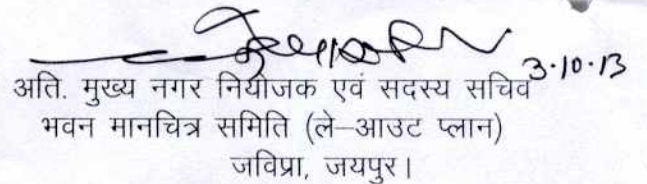 3.10.13
अति. मुख्य नगर नियोजक एवं सदस्य सचिव
भवन मानचित्र समिति (ले–आउट प्लान)
जविप्रा, जयपुर।